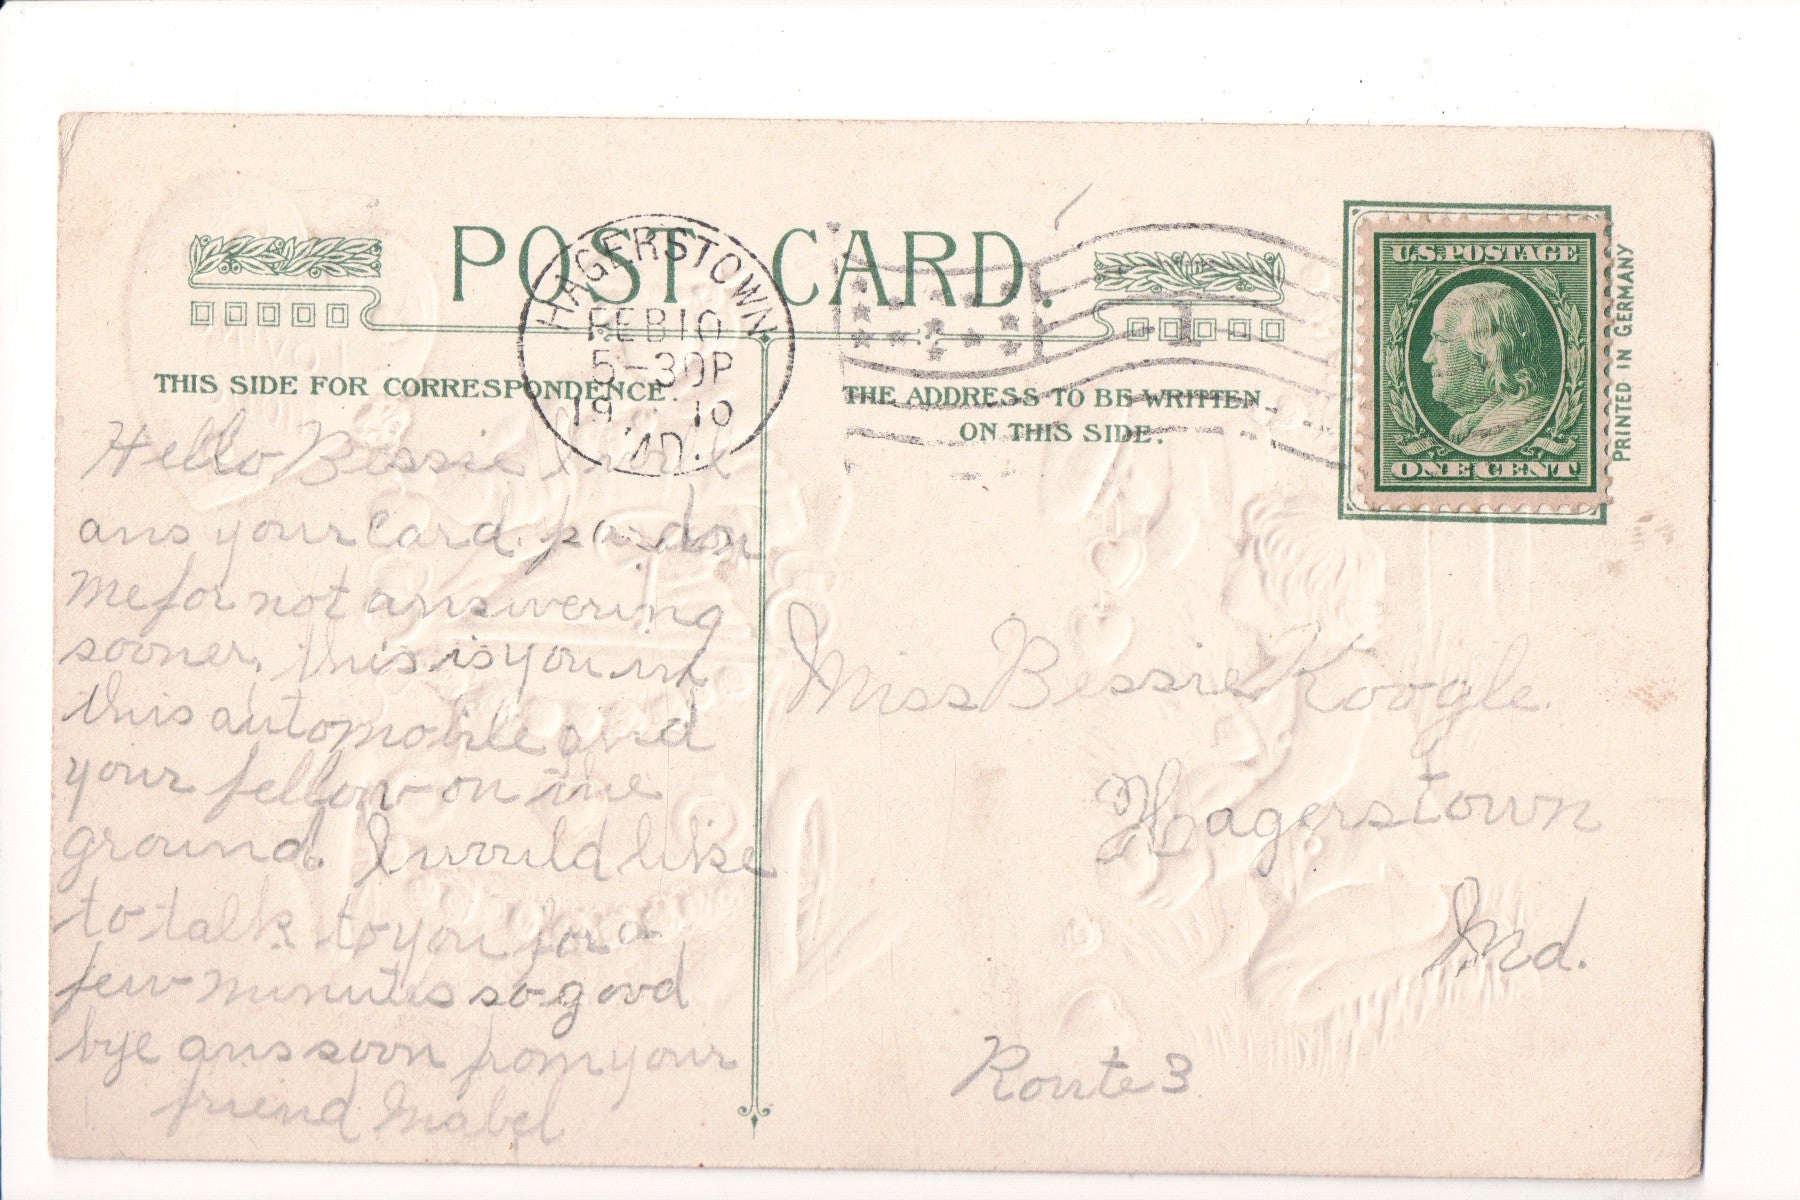 POST CARD.
HAGERSTOWN
FEB 10
5-30P
1910
MD.
1
U.S. POSTAGE
ONE CENT
PRINTED IN GERMANY
THIS SIDE FOR CORRESPONDENCE.
THE ADDRESS TO BE WRITTEN
ON THIS SIDE.
Hello Bessie I will
ans your card. pardon
me for not answering
sooner. this is you in
this automobile and
your fellow on the
ground. I would like
to talk to you for a
few minutes so good
bye ans soon from your
friend Mabel
Miss Bessie Koogle.
Hagerstown
Md.
Route 3.